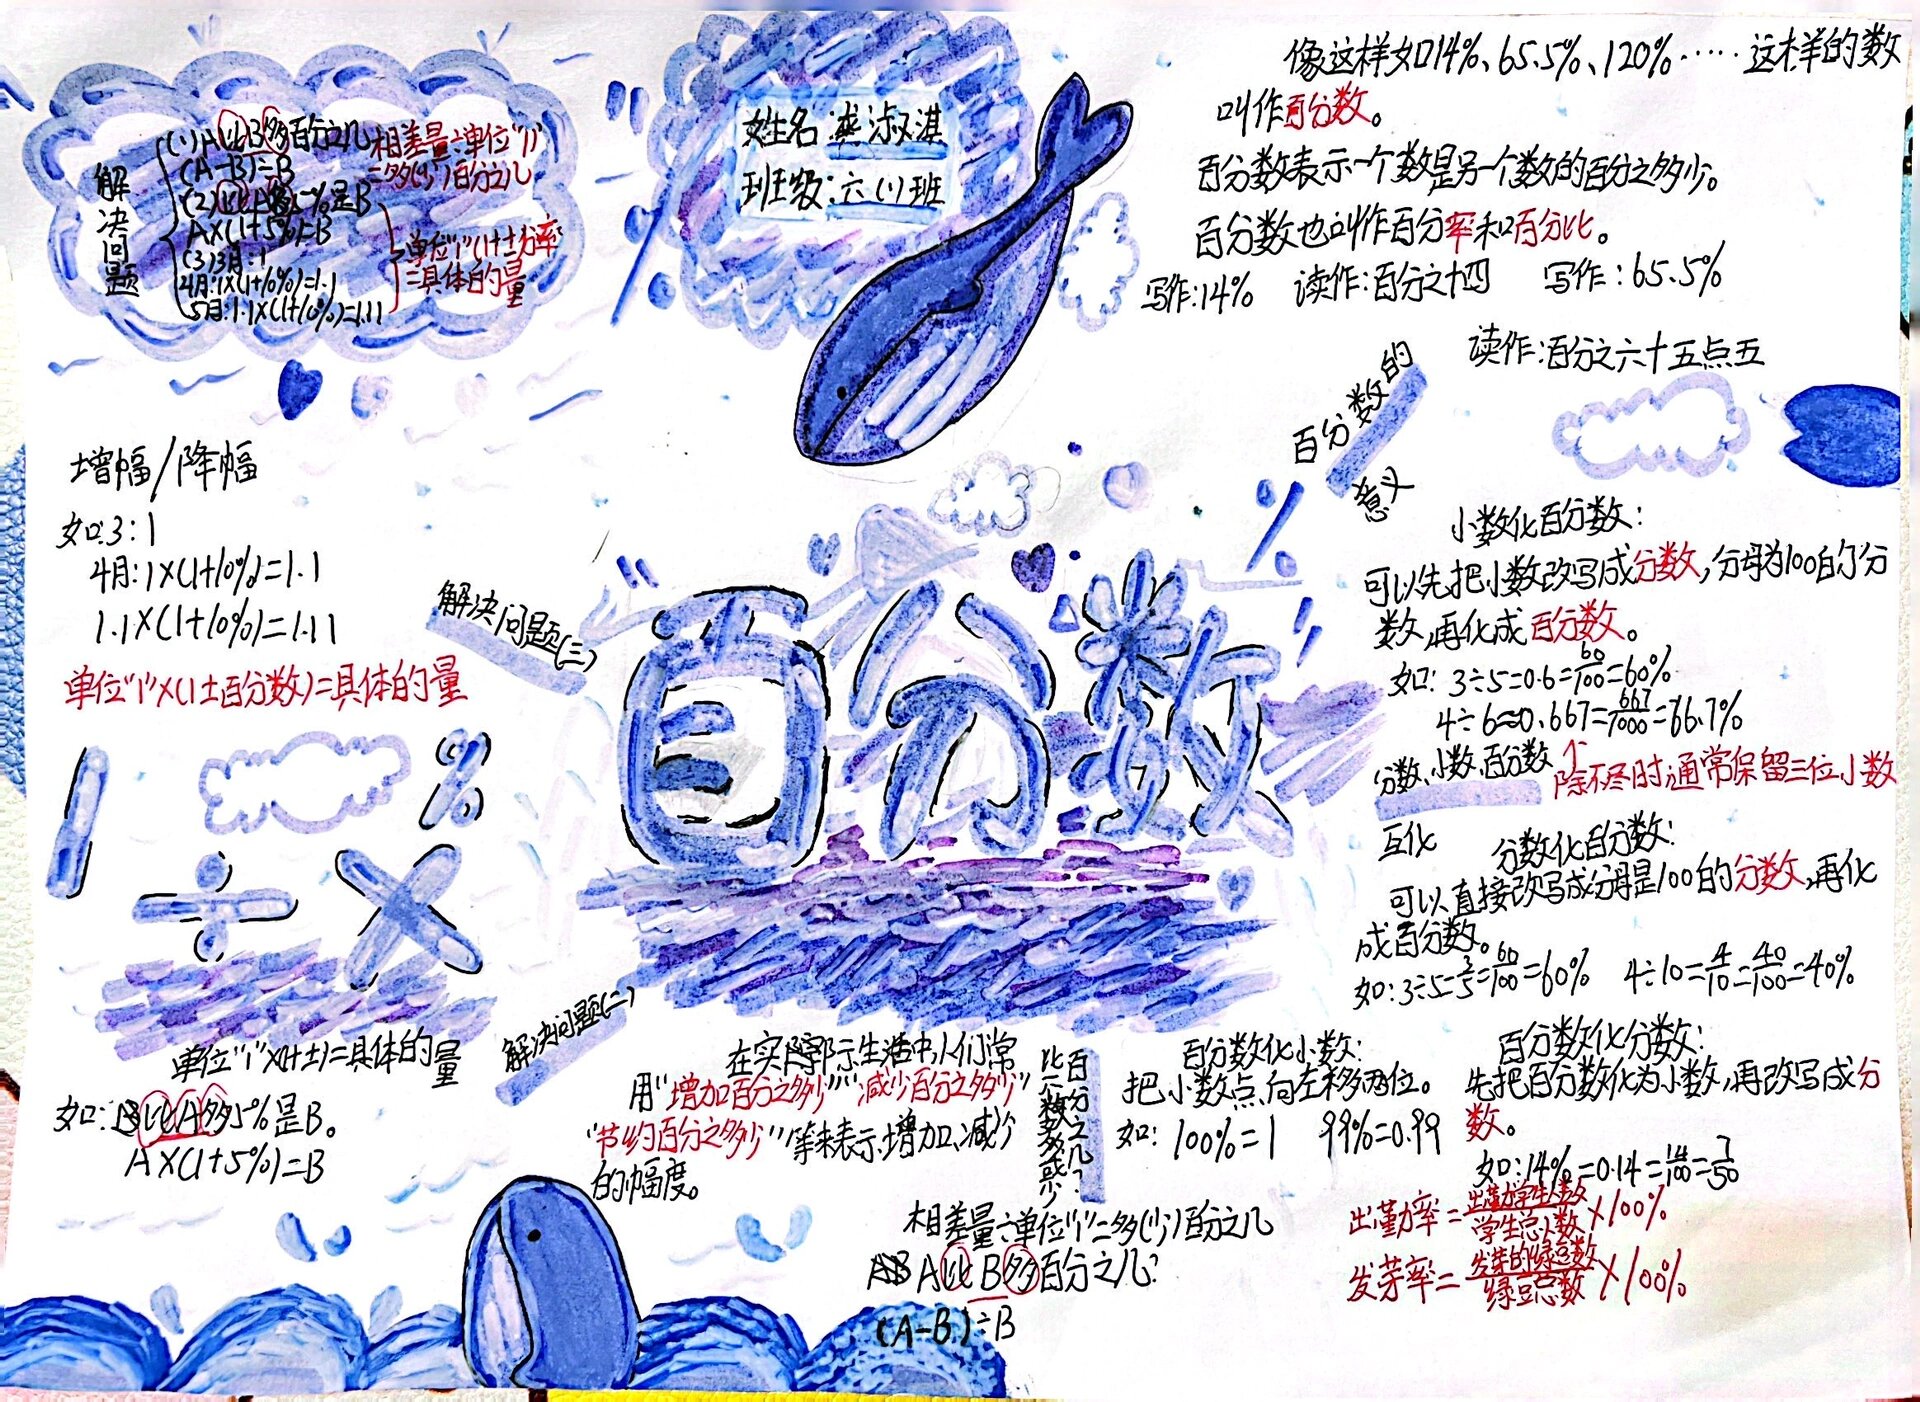 解决问题
(1)A比B多百分之几
(A-B)÷B
相差量÷单位"1"
=多(少)百分之几
A×(1+5%)=B
(3)3月:1
4月:1×(1+10%)=1.1
5月:1.1×(1+10%)=1.11
=具体的量
姓名:
班级:六(1)班
像这样如14%、65.5%、120%……这样的数
叫作百分数。
百分数表示一个数是另一个数的百分之多少。
百分数也叫作百分率和百分比。
写作:14% 读作:百分之十四 写作:65.5%
读作:百分之六十五点五
百分数的
意义
增幅/降幅
如:3:1
4月:1×(1+10%)=1.1
1.1×(1+10%)=1.11
单位"1"×(1±百分数)=具体的量
解决问题(三)
1 % ÷ ×
百分数
%
小数化百分数:
可以先把小数改写成分数,分母为100的分
数,再化成百分数。
如:3÷5=0.6=60/100=60%
4÷6≈0.667=667/1000=66.7%
↑
除不尽时通常保留三位小数
分数、小数、百分数
互化
分数化百分数:
可以直接改写成分母是100的分数,再化
成百分数。
如:3÷5=3/5=60/100=60% 4÷10=4/10=40/100=40%
解决问题(二)
单位"1"×(1±)=具体的量
如:比A多5%是B。
A×(1+5%)=B
在实际生活中,人们常
用"增加百分之多少""减少百分之多少"
"节约百分之多少"等来表示增加、减少
的幅度。
百分数化小数:
把小数点向左移两位。
如: 100%=1 99%=0.99
百分数化分数:
先把百分数化为小数,再改写成分
数。
如:14%=0.14=14/100=7/50
相差量÷单位"1"=多(少)百分之几
A比B多百分之几?
(A-B)÷B
出勤率=出勤学生人数/学生总小数×100%
发芽率=发芽的绿豆数/绿豆总数×100%